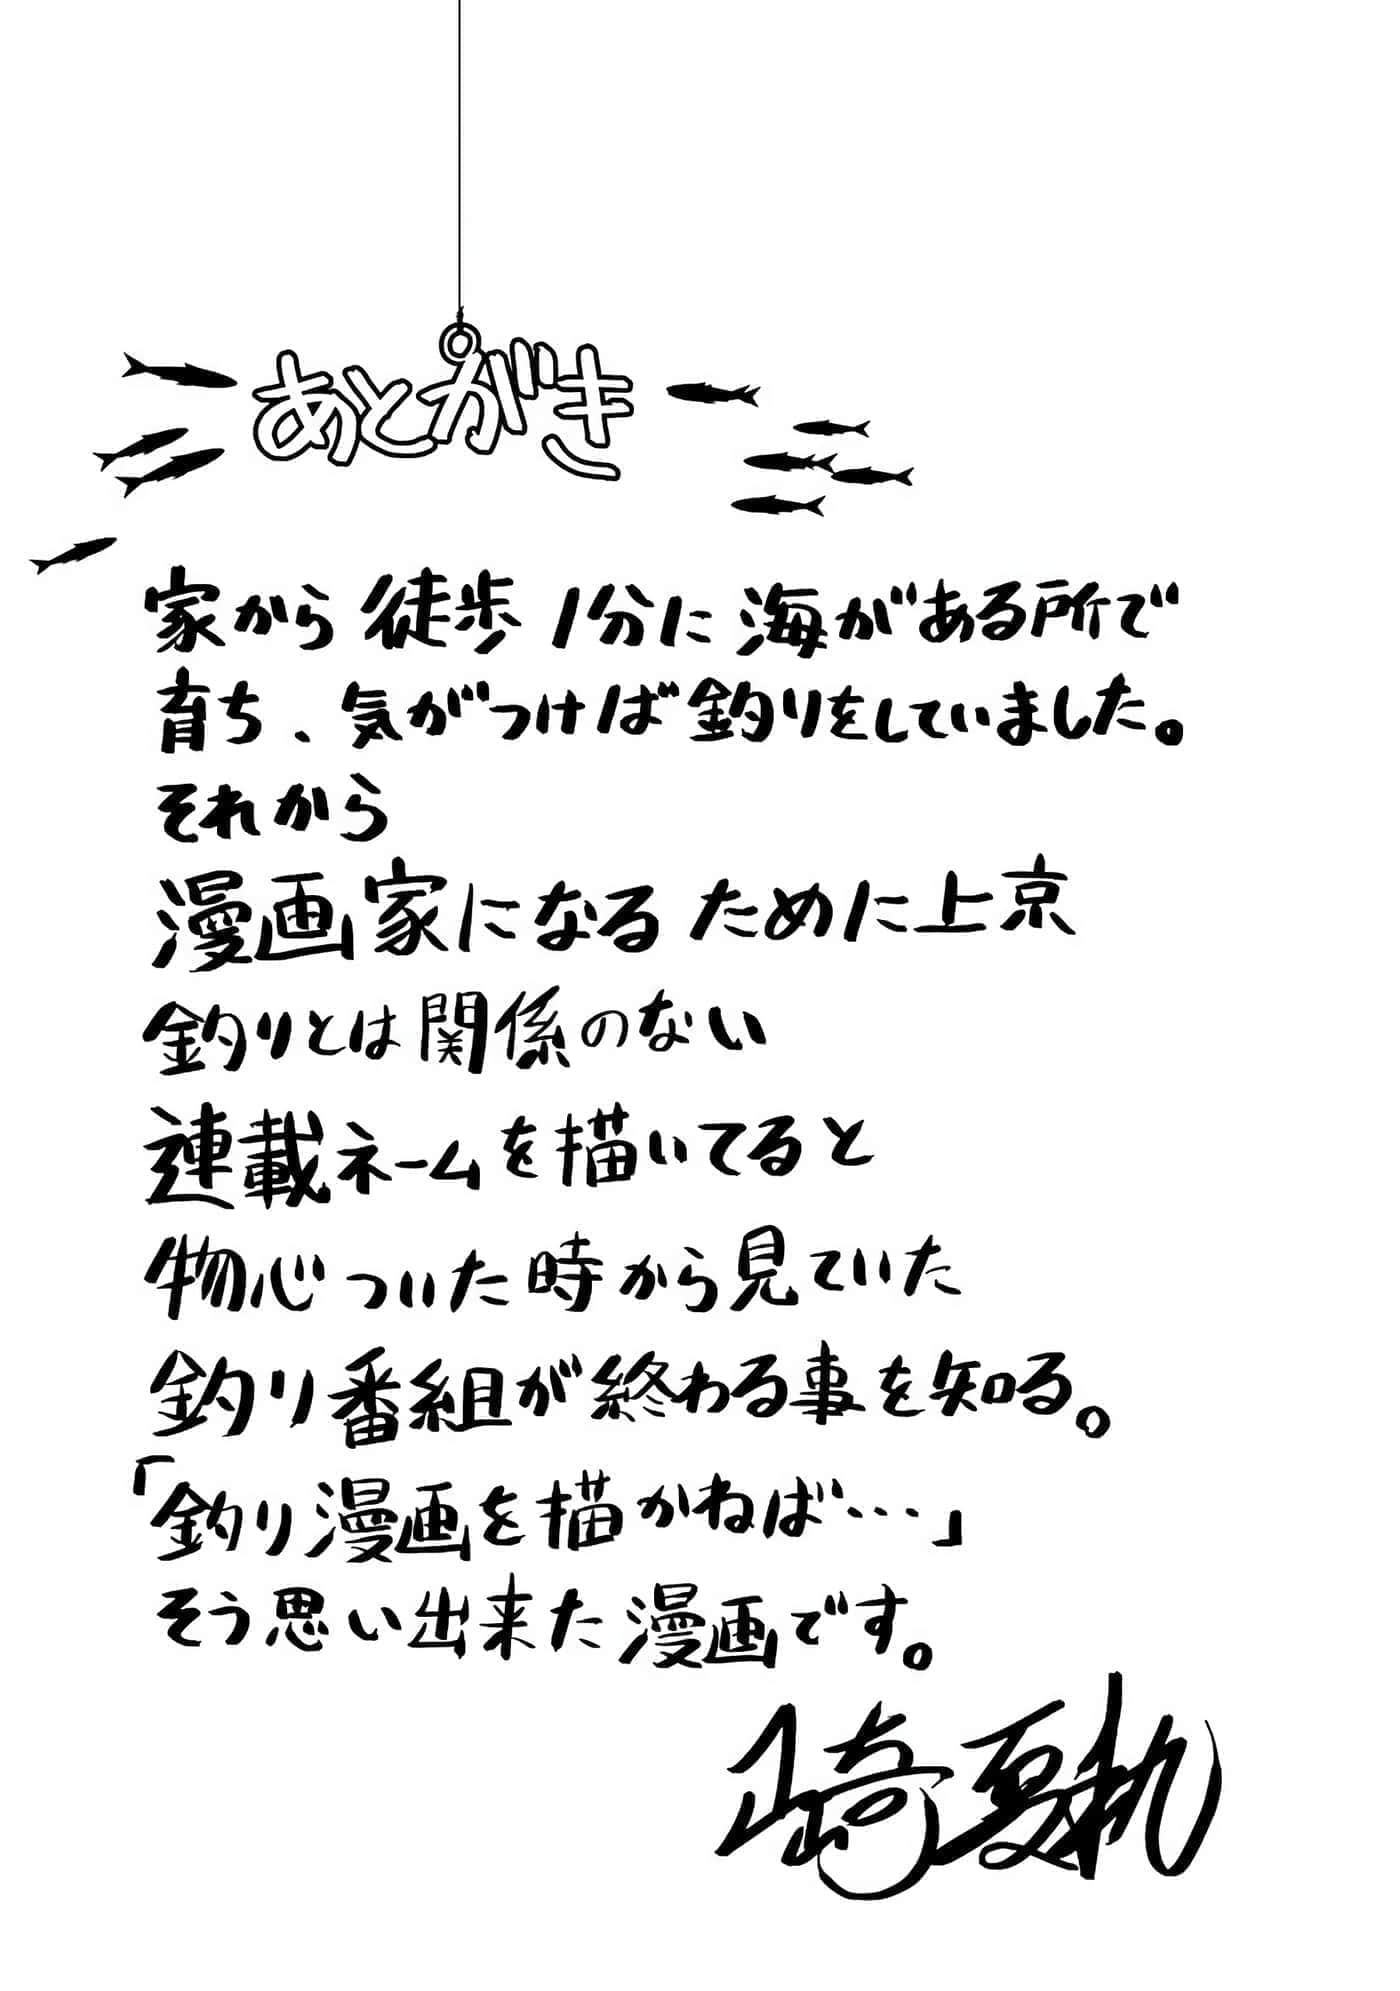 あとがき
家から徒歩1分に海がある所で
育ち、気がつけば釣りをしていました。
それから
漫画家になるために上京
釣りとは関係のない
連載ネームを描いてると
物心ついた時から見ていた
釣り番組が終わる事を知る。
「釣り漫画を描かねば…」
そう思い出来た漫画です。